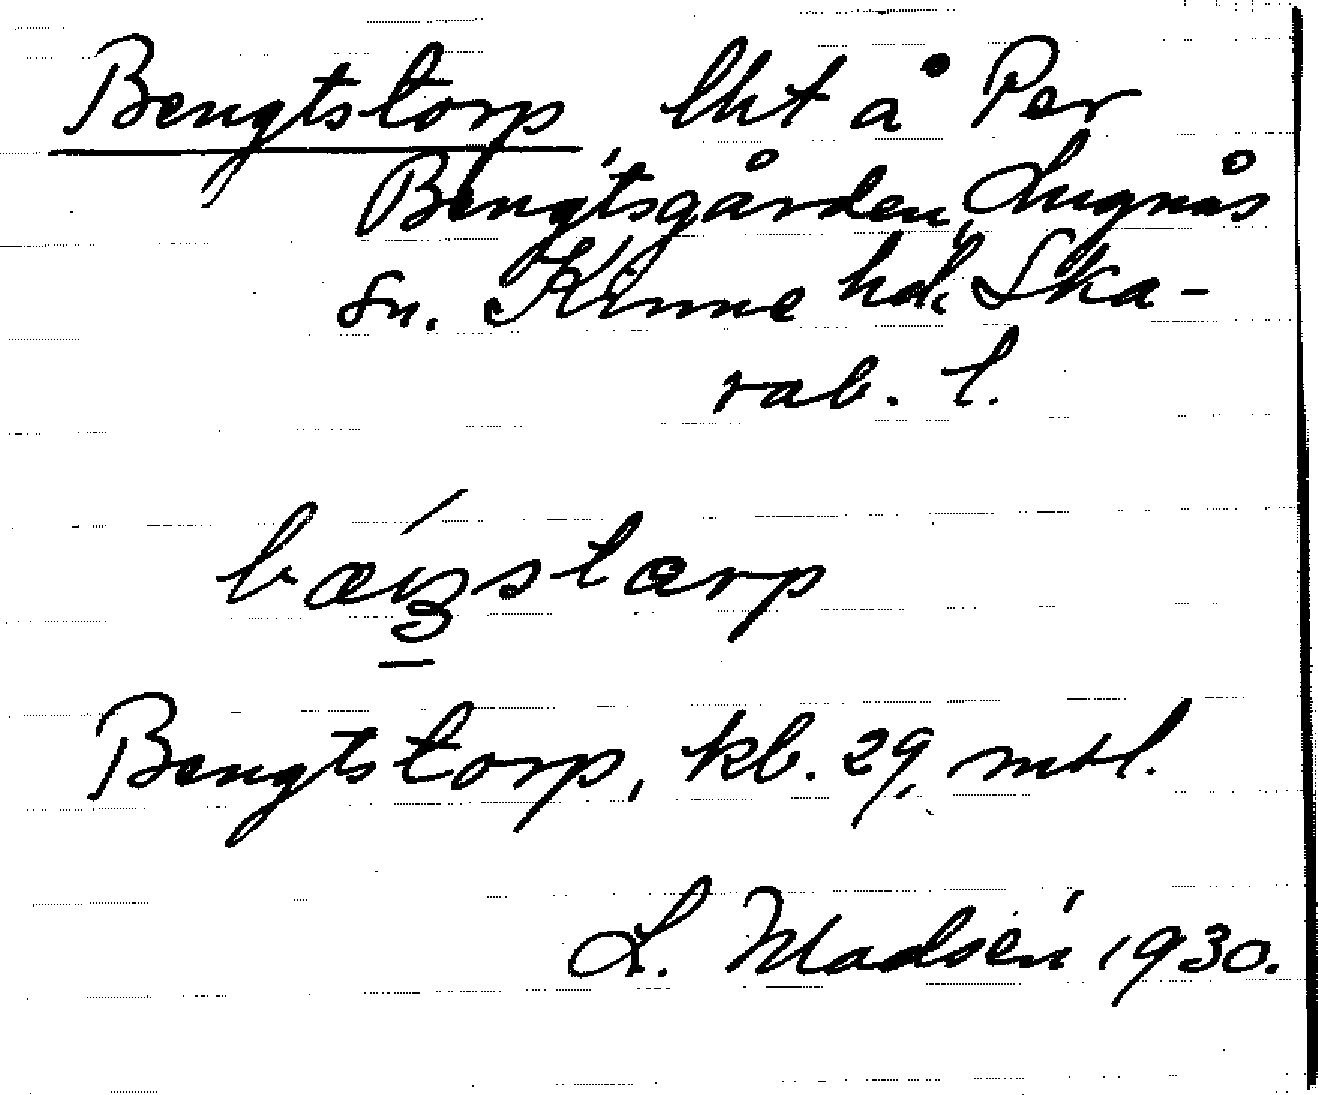 Bengtstorp, lht å Per
Bengtsgården, Lugnås
sn. Kinne hd, Ska-
rab. l.
bæŋstærp
Bengtstorp, kb. 29, mtl.
L. Madsén 1930.